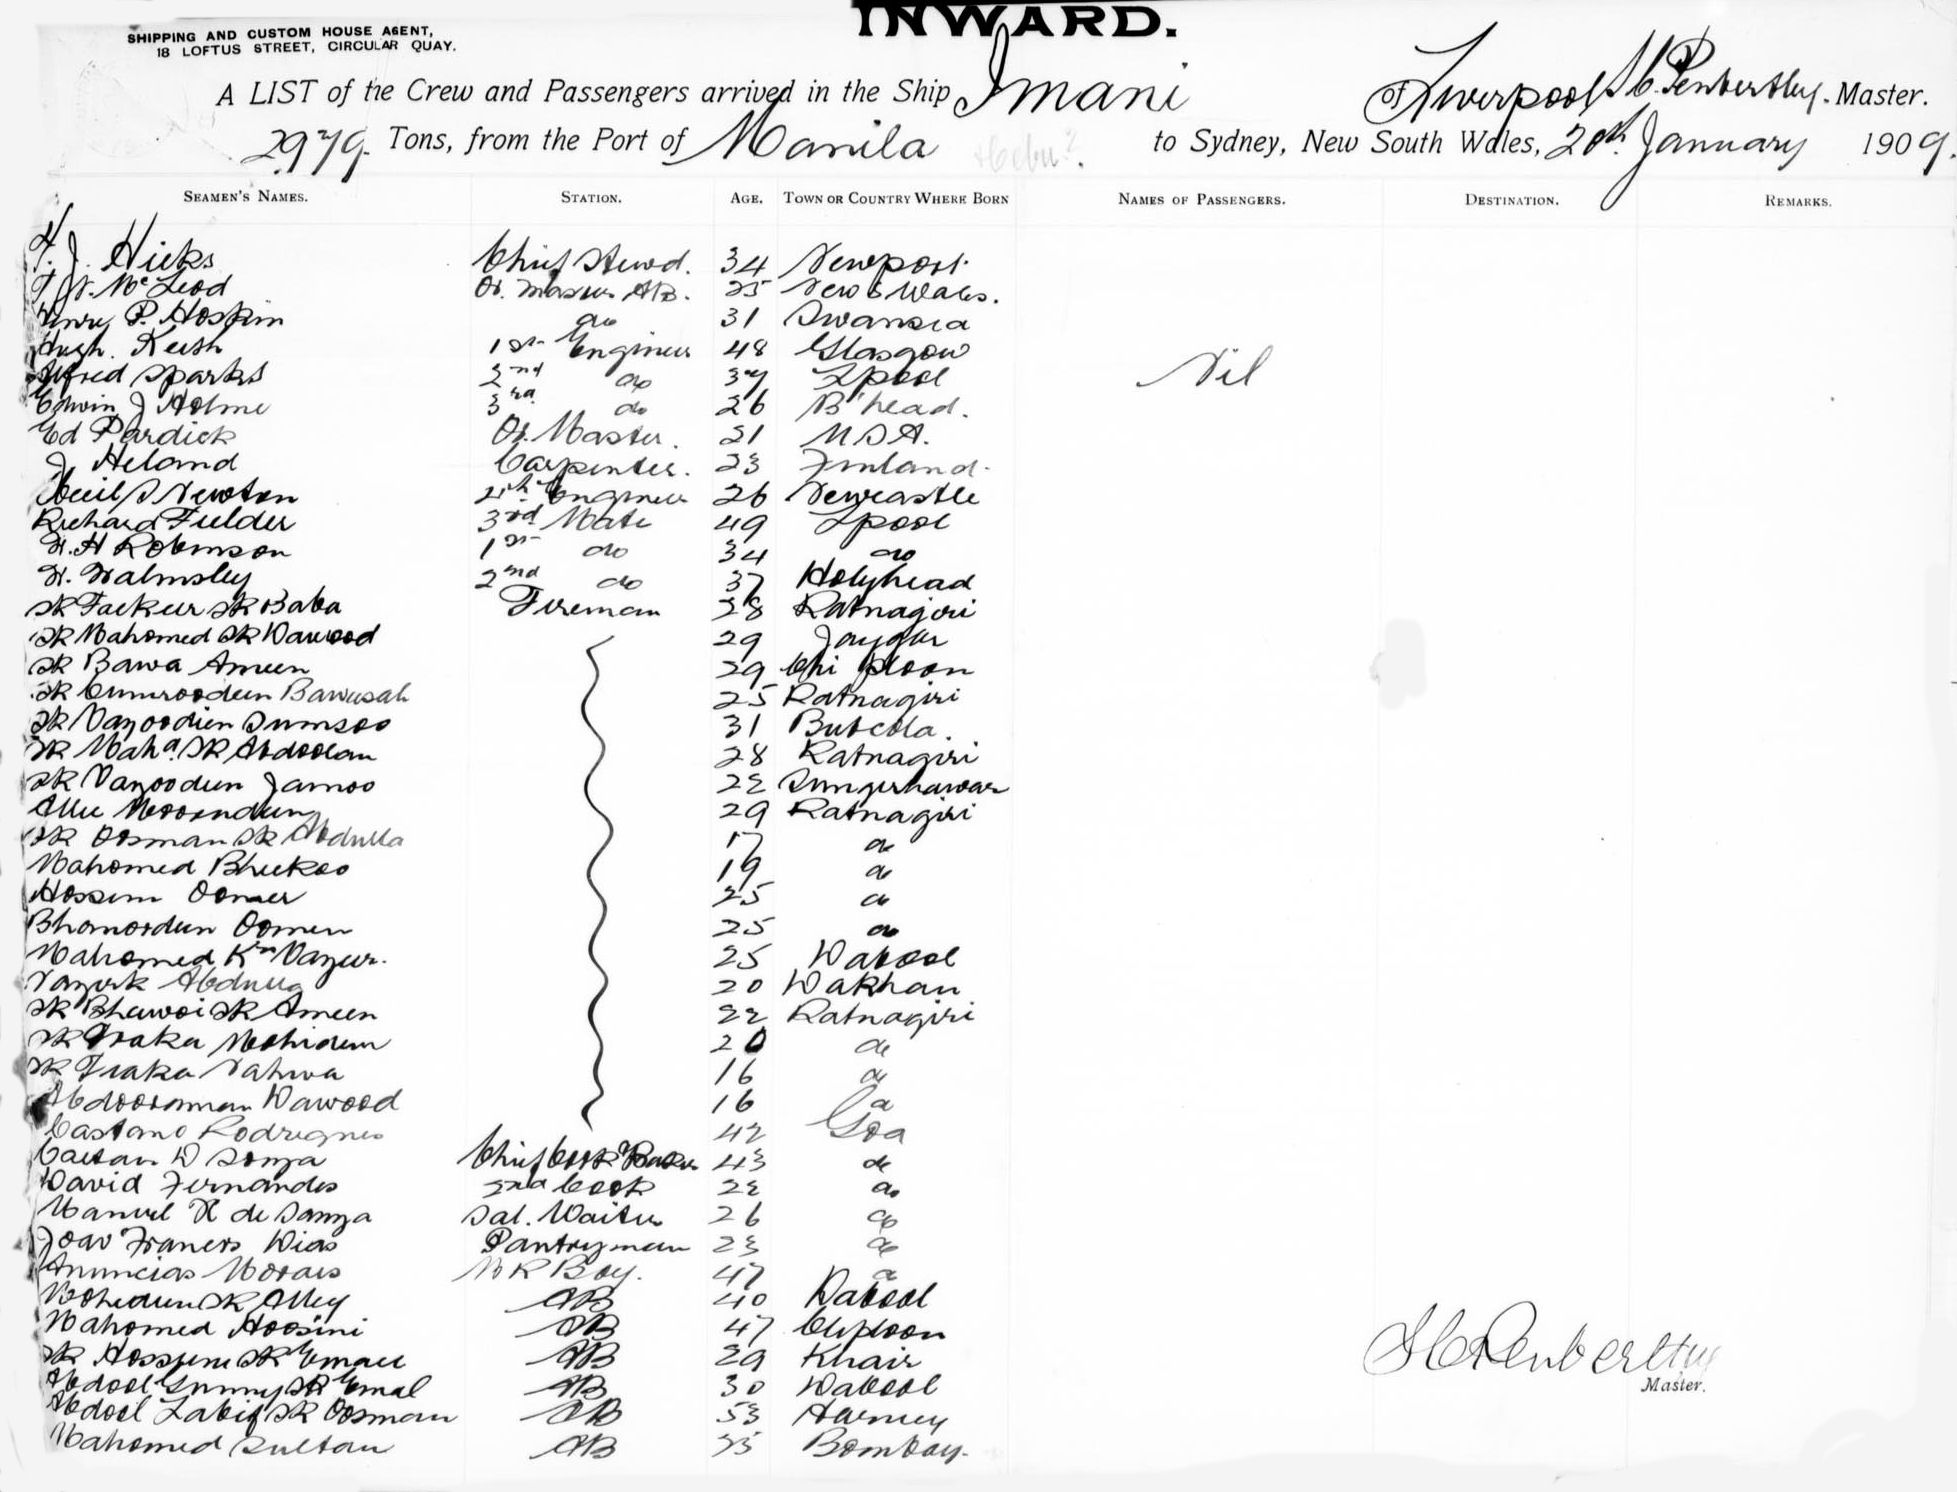 INWARD.
SHIPPING AND CUSTOM HOUSE AGENT,
18 LOFTUS STREET, CIRCULAR QUAY.
A LIST of the Crew and Passengers arrived in the Ship Imani of Liverpool Penberthy. Master.
2979 Tons, from the Port of Manila Cebu? to Sydney, New South Wales, 20th January 1909.
SEAMEN'S NAMES. STATION. AGE. TOWN OR COUNTRY WHERE BORN NAMES OF PASSENGERS. DESTINATION. REMARKS.
J. Hicks Chief Stewd. 34 Newport
McLeod Qr. Master AB. 25 New S Wales.
Henry P. Hoskin do 31 Swansea
Hugh Keith 1st Engineer 48 Glasgow
Alfred Sparks 2nd do 37 Lpool Nil
Edwin J Holme 3rd do 26 B'head.
Ed Pardick Qr. Master. 21 USA.
J. Heland Carpenter. 23 Finland.
Cecil S Newton 4th Engineer 26 Newcastle
Richard Fielder 3rd Mate 49 Lpool
H. H Robinson 1st do 34 do
W. Walmsley 2nd do 37 Holyhead
Sk Fackeer Sk Baba Fireman 28 Ratnagiri
Sk Mahomed Sk Dawood 29 Jaygur
Sk Bawa Ameen 29 Chi ploon
Sk Cumroodeen Bawasah 25 Ratnagiri
Sk Vazoodien 31
Sk Mahd. Sk Abdoolan 28 Ratnagiri
Sk Vazoodeen Jamoo 22
Allie 29 Ratnagiri
Sk Oosman Sk Abdulla 17 do
Mahomed Bheekoo 19 do
Hossein Oomer 25 do
Oomer 25 do
Mahomed 25 Dabool
Abdulla 20 Dakhan
Sk Bhawoi Sk Ameen 22 Ratnagiri
Sk Mohideen 20 do
Sk 16 do
Abdooraman Dawood 16 do
Castano Rodrigues 42 Goa
Caetan D Souza Chief Cook & Baker 43 do
David Fernandes 2nd Cook 22 do
Manuel de Souza Sal. Waiter 26 do
Joao Francis Dias Pantryman 23 do
Anuncias Morais M R Boy. 47 do
Mohedeen Sk Alley AB 40 Dabool
Mahomed Hoosini AB 47 Chiploon
Sk Hossein Sk Emael AB 29 Khair
Abdool Gunny Sk Emal AB 30 Dabool
Abdool Latif Sk Oosman AB 53 Harney
Mahomed Sultan AB 35 Bombay.
Penberthy
Master.